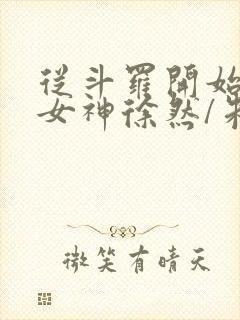 從斗羅開始
女神徐然/朱
微笑有晴天